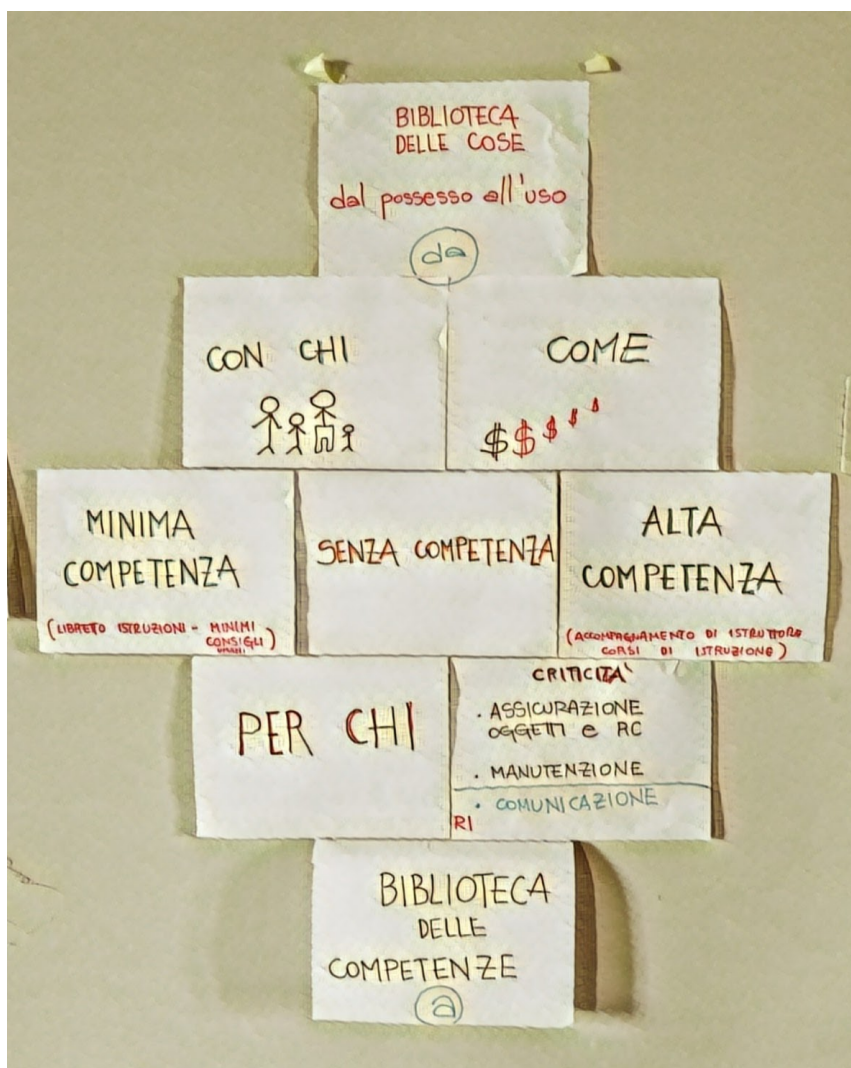 BIBLIOTECA
DELLE COSE
dal possesso all'uso
da
CON CHI
COME
$ $ $ $ $
MINIMA
COMPETENZA
(LIBRETO ISTRUZIONI - MINIMI
CONSIGLI)
UMANI
SENZA COMPETENZA
ALTA
COMPETENZA
(ACCOMPAGNAMENTO DI ISTRUTTORE
CORSI DI ISTRUZIONE)
PER CHI
CRITICITA'
. ASSICURAZIONE
OGGETTI e RC
. MANUTENZIONE
. COMUNICAZIONE
RI
BIBLIOTECA
DELLE
COMPETENZE
a